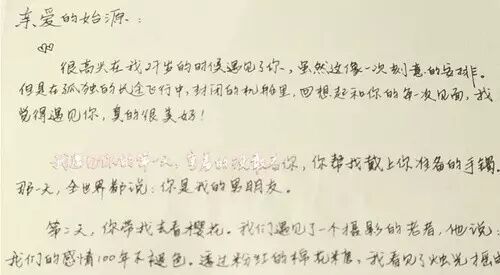 亲爱的始源：
很高兴在我27岁的时候遇见了你，虽然这像一次刻意的安排。
但是在孤独的长途飞行中，封闭的机舱里，回想起和你的每次见面，我
觉得遇见你，真的很美好！
你，你帮我戴上你准备的手镯。
那一天，全世界都说：你是我的男朋友。
第二天，你带我去看樱花。我们遇见了一个摄影的老者，他说：
我们的感情100年不褪色。透过粉红的棉花糖，我看见了